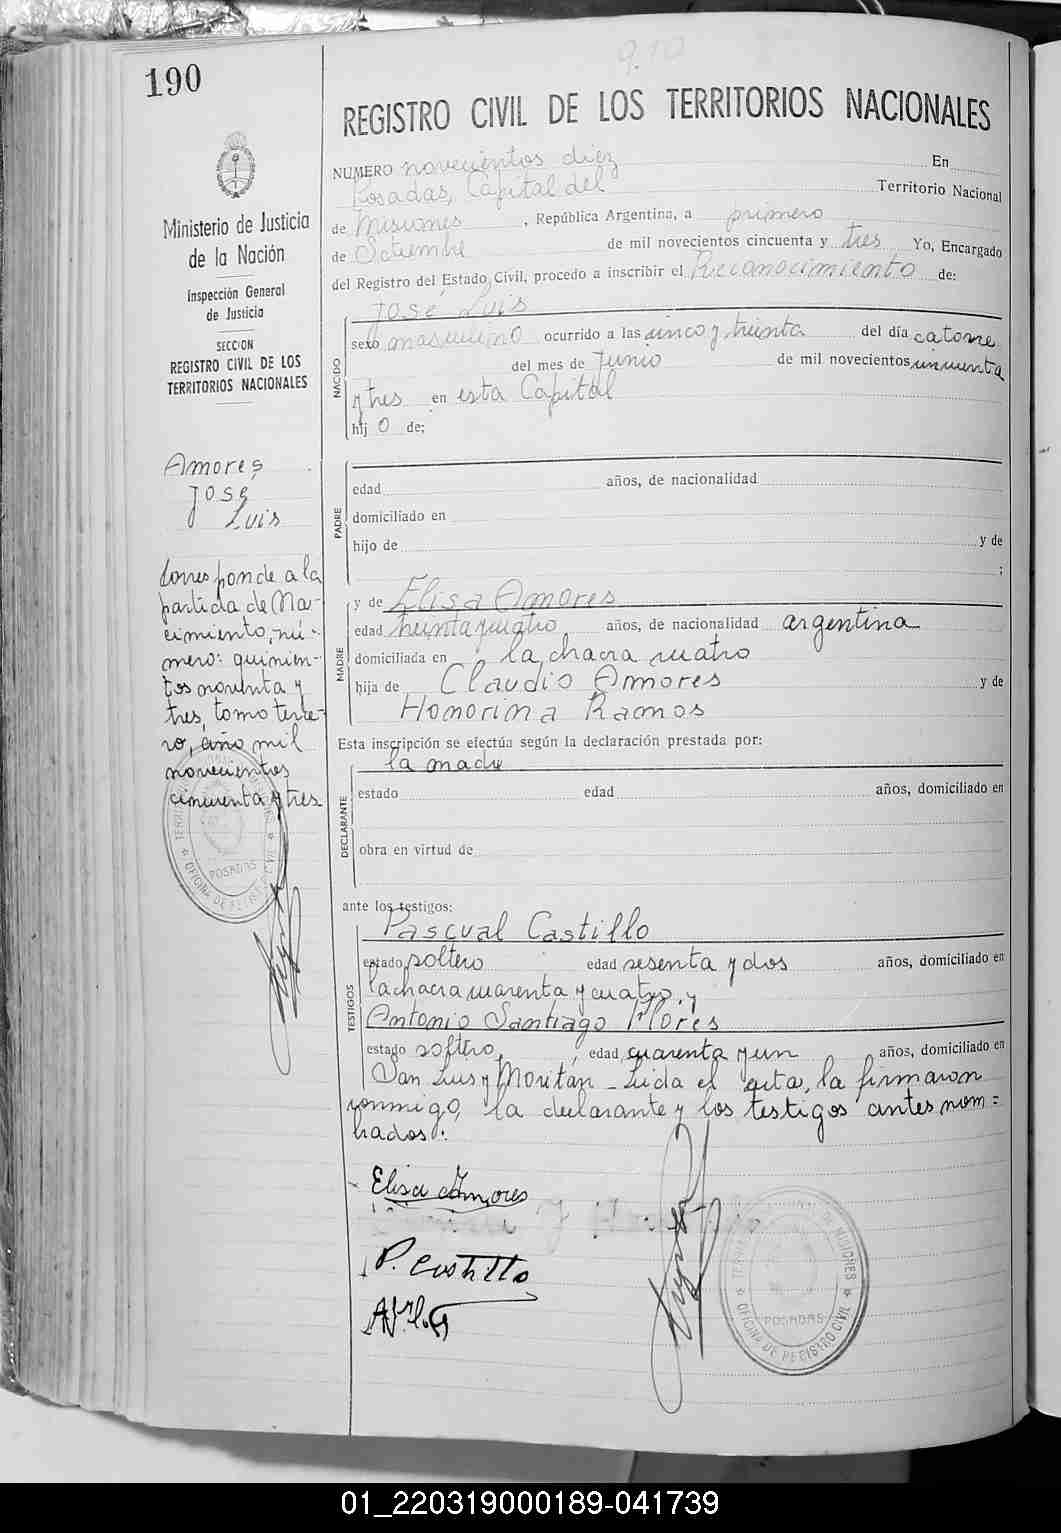 910
190
REGISTRO CIVIL DE LOS TERRITORIOS NACIONALES
Ministerio de Justicia
de la Nación
Inspección General
de Justicia
SECCION
REGISTRO CIVIL DE LOS
TERRITORIOS NACIONALES
Amores
José
Luis
Corresponde a la
partida de Na-
cimiento, nú-
mero: quinien-
tos noventa y
tres, tomo terce-
ro, año mil
novecientos
cincuenta y tres
NUMERO novecientos diez En
Posadas, Capital del Territorio Nacional
de Misiones, República Argentina, a primero
de Setiembre de mil novecientos cincuenta y tres Yo, Encargado
del Registro del Estado Civil, procedo a inscribir el Reconocimiento de:
José Luis
NACIDO
sexo masculino ocurrido a las cinco y treinta del día catorce
del mes de Junio de mil novecientos cincuenta
y tres en esta Capital
hij o de;
PADRE
edad años, de nacionalidad
domiciliado en
hijo de y de
;
MADRE
y de Elisa Amores
edad treinta y cuatro años, de nacionalidad argentina
domiciliada en la chacra cuatro
hija de Claudio Amores y de
Honorina Ramos
Esta inscripción se efectúa según la declaración prestada por:
la madre
DECLARANTE
estado edad años, domiciliado en
obra en virtud de
ante los testigos:
TESTIGOS
Pascual Castillo
estado soltero edad sesenta y dos años, domiciliado en
la chacra cuarenta y cuatro, y
Antonio Santiago Flores
estado soltero, edad cuarenta y un años, domiciliado en
San Luis y Moritan - Leida el acta, la firmaron
conmigo, la declarante y los testigos antes nom=
brados:
Elisa Amores
P. Castillo
OFICINA DE REGISTRO CIVIL
POSADAS
TERRITORIO DE MISIONES
OFICINA DE REGISTRO CIVIL
POSADAS
01_220319000189-041739